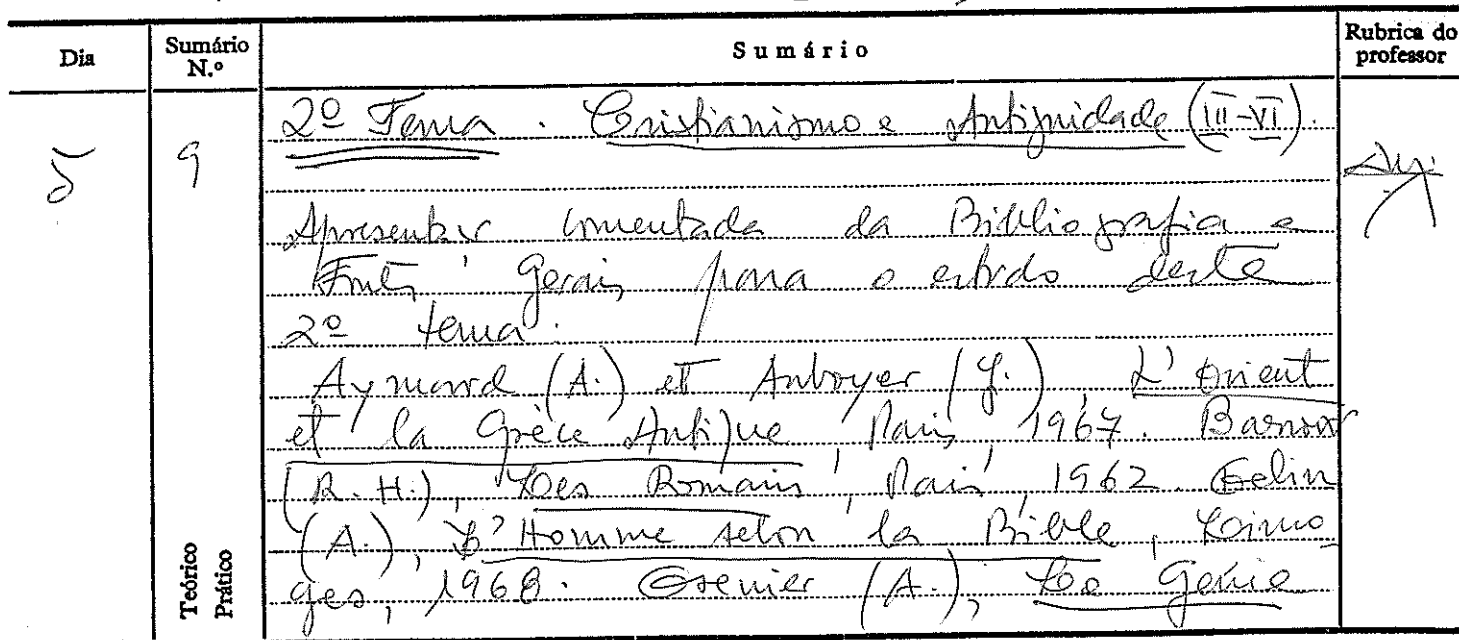 Dia Sumário N.º Sumário Rubrica do professor
2º Tema. Cristianismo e Antiguidade (III-VI).
5 9
Apresentar comentada da Bibliografia e
Fontes Gerais para o estudo deste
2º tema:
Aymard (A.) et Auboyer (J.), L'Orient
et la Grèce Antique, Paris, 1967. Barrow
(R. H.), Les Romains, Paris, 1962. Gelin
(A.), L'Homme selon la Bible, Limo-
ges, 1968. Grenier (A.), Le Génie
Teórico
Prático